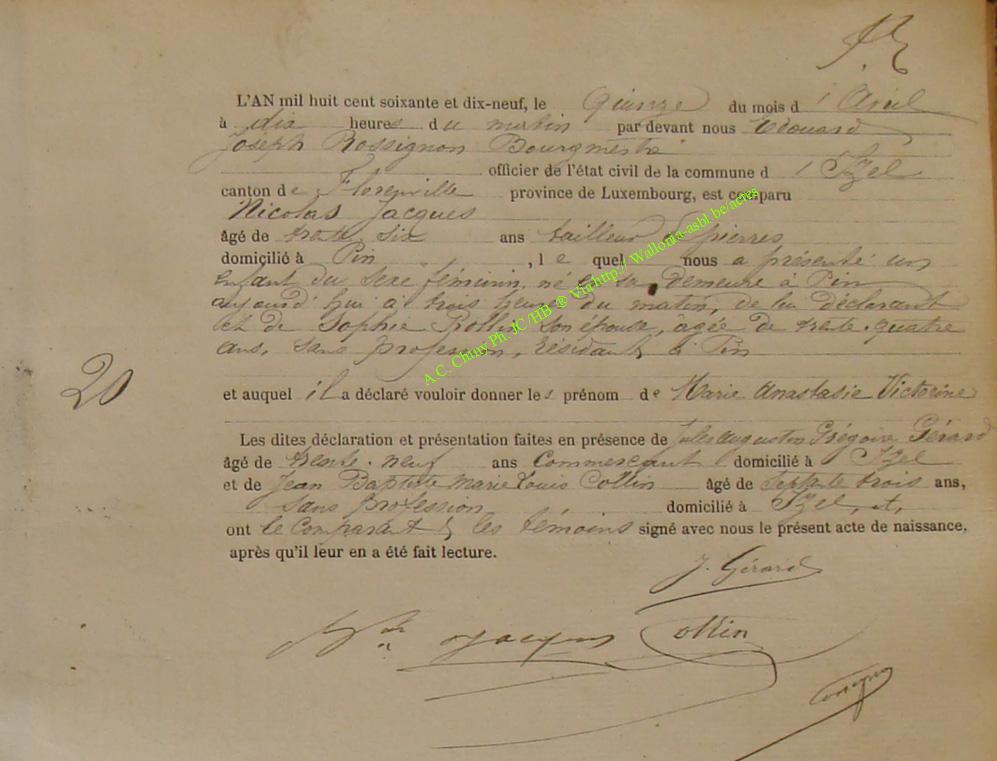 L'AN mil huit cent soixante et dix-neuf, le Quinze du mois d'Avril
à dix heures du matin par devant nous Edouard
Joseph Rossignon Bourgmestre
officier de l'état civil de la commune d'Izel
canton de Florenville province de Luxembourg, est comparu
Nicolas Jacques
âgé de trente six ans tailleur de pierres
domicilié à Pin, le quel nous a présenté un
enfant du sexe féminin, né en sa demeure à Pin
aujourd'hui à trois heures du matin, de lui déclarant
et de Sophie Rollin son épouse, âgée de trente-quatre
ans, sans profession, résidant à Pin
20
et auquel il a déclaré vouloir donner les prénom de Marie Anastasie Victorine
Les dites déclaration et présentation faites en présence de Jules Augustin Grégoire Gérard
âgé de trente-neuf ans Commerçant domicilié à Izel
et de Jean Baptiste Marie Louis Collin âgé de septante trois ans,
sans profession domicilié à Izel, et,
ont le Comparant & les témoins signé avec nous le présent acte de naissance,
après qu'il leur en a été fait lecture.
J. Gérard
Jacques Collin
A.C. Chiny Ph. JC /HB @ Via http:// Wallonia-asbl.be/actes